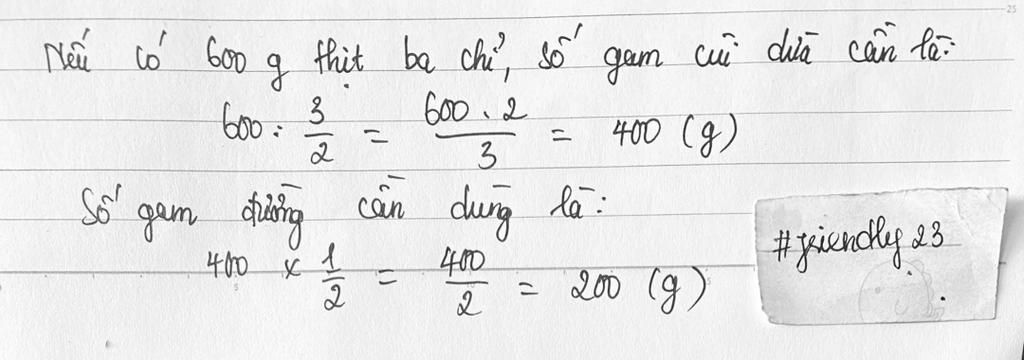 Nếu có 600 g thịt ba chỉ, số gam cùi dừa cần là:
600 : 3/2 = 600 . 2/3 = 400 (g)
Số gam đường cần dùng là:
400 x 1/2 = 400/2 = 200 (g)
#friendly.23
25